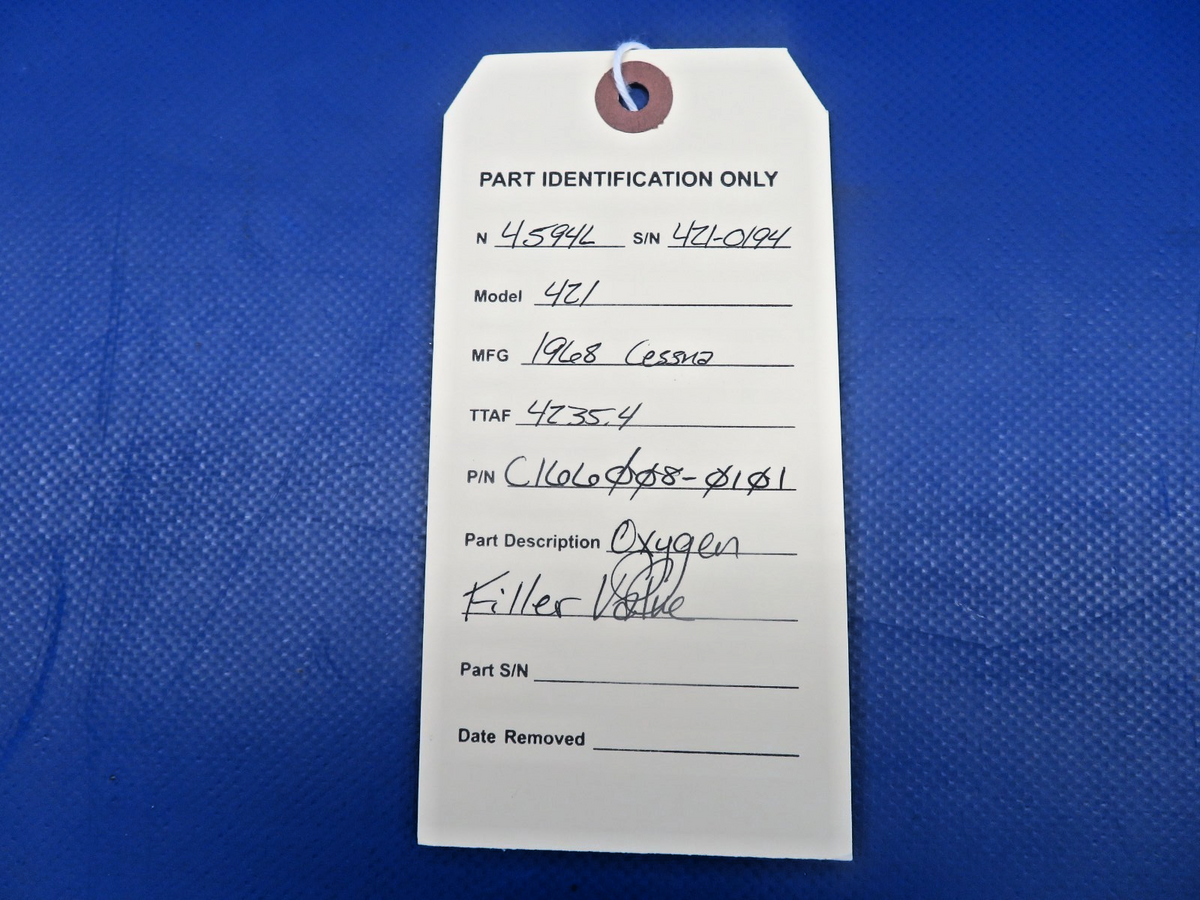 PART IDENTIFICATION ONLY
N 4594L S/N 421-0194
Model 421
MFG 1968 Cessna
TTAF 4235.4
P/N C166ØØ8-Ø1Ø1
Part Description Oxygen
Filler Valve
Part S/N
Date Removed